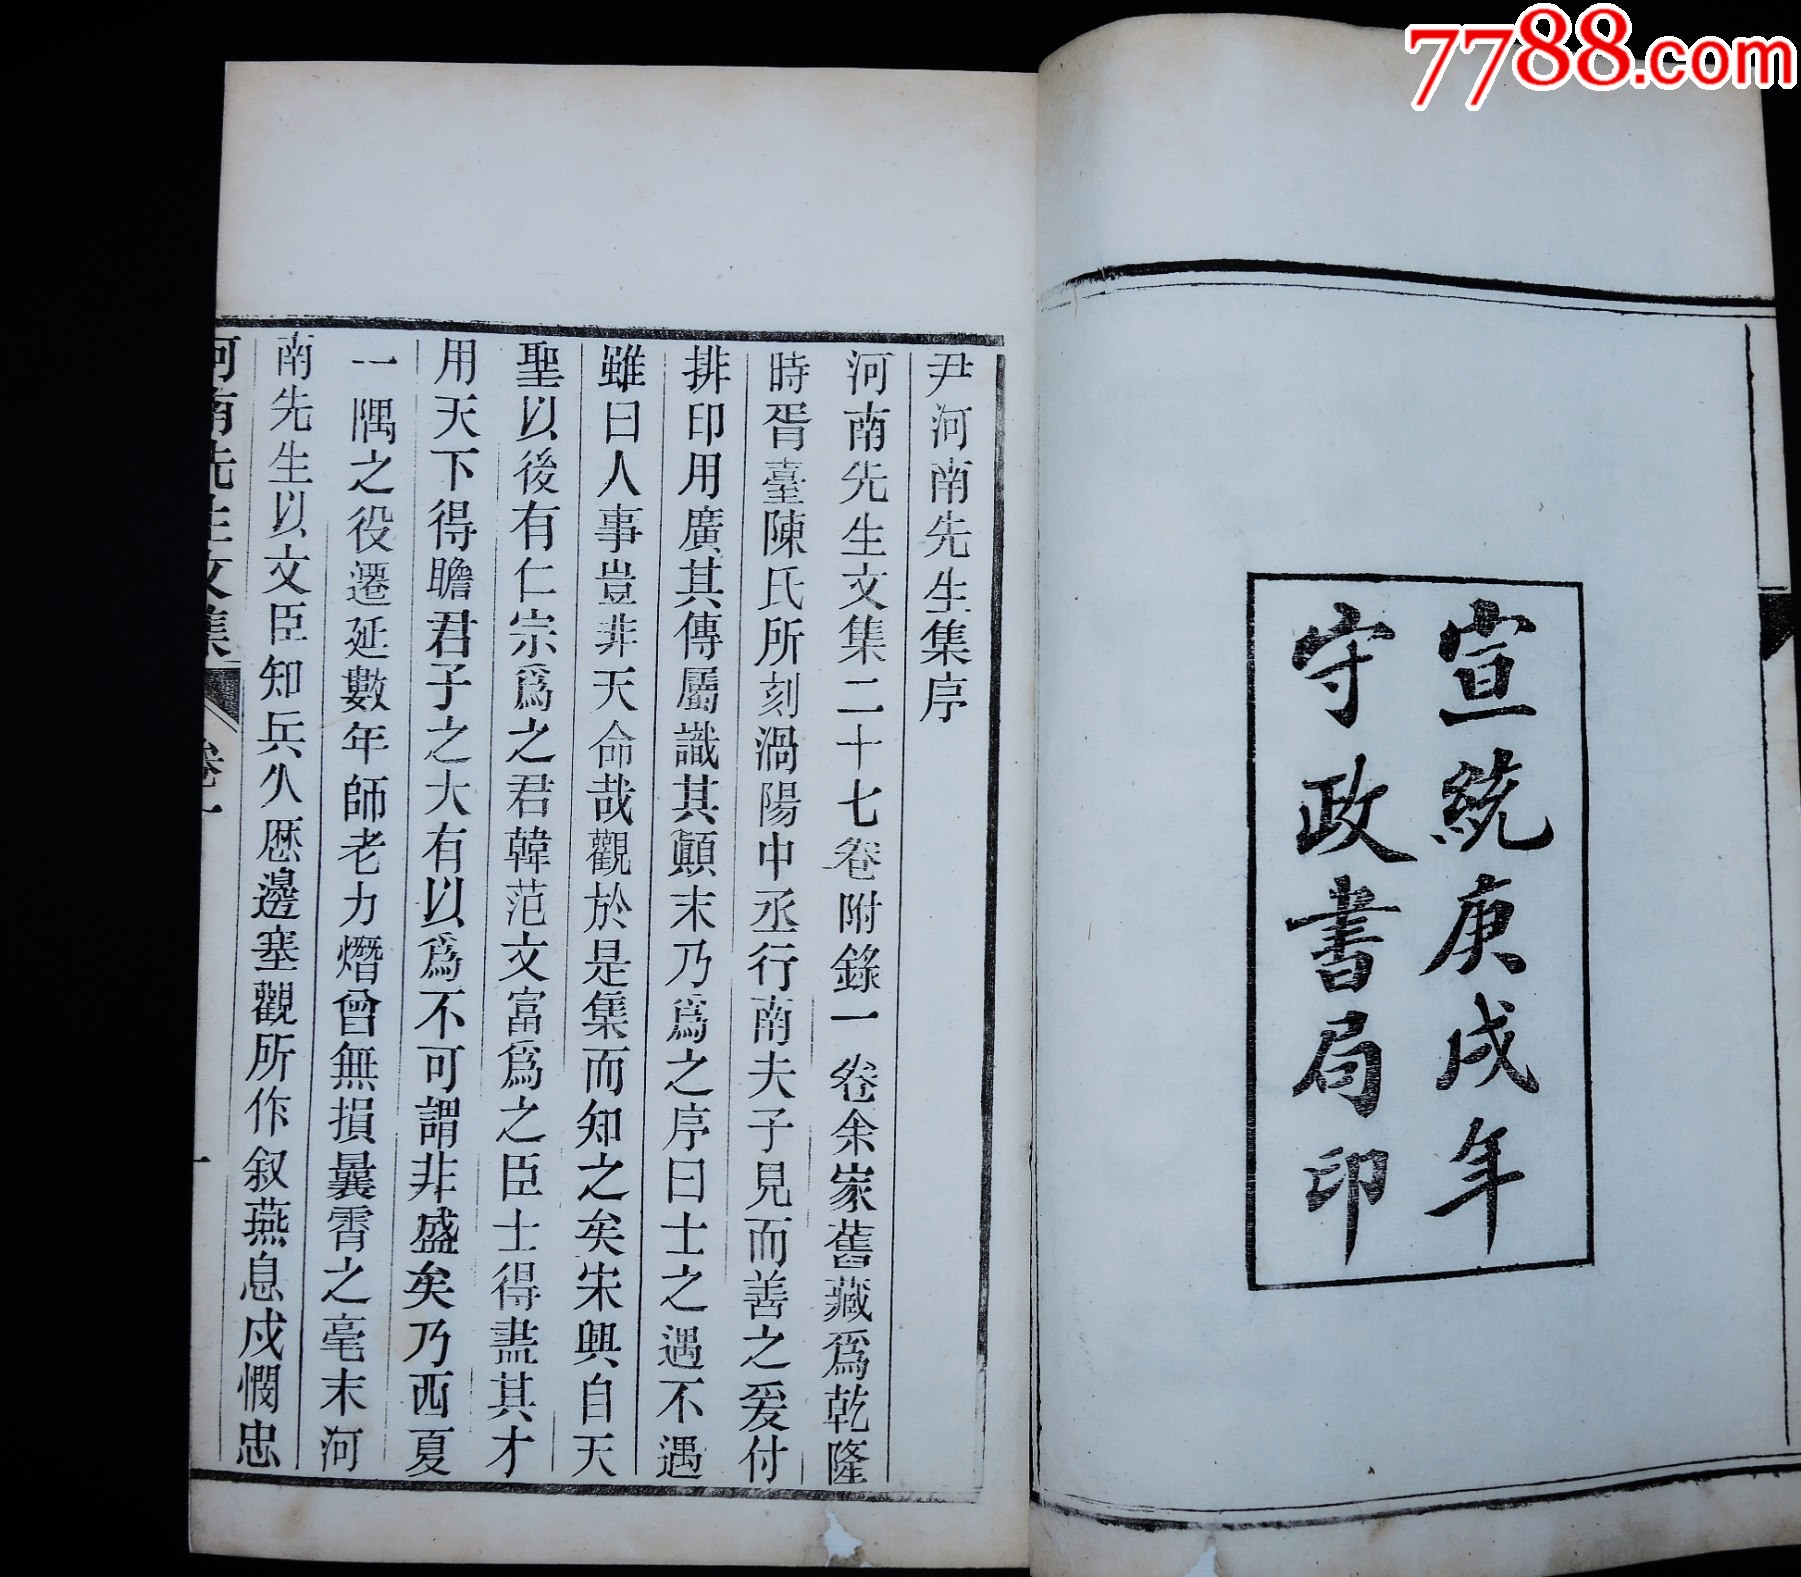 7788.com
宣統庚戌年
守政書局印
尹河南先生集序
河南先生文集二十七卷附錄一卷余家舊藏爲乾隆
時胥臺陳氏所刻渦陽中丞行南夫子見而善之爰付
排印用廣其傳屬識其顚末乃爲之序曰士之遇不遇
雖曰人事豈非天命哉觀於是集而知之矣宋興自天
聖以後有仁宗爲之君韓范文富爲之臣士得盡其才
用天下得瞻君子之大有以爲不可謂非盛矣乃西夏
一隅之役遷延數年師老力熸曾無損曩霄之毫末河
南先生以文臣知兵久歷邊塞觀所作叙燕息戍憫忠
河南先生文集 卷一 一